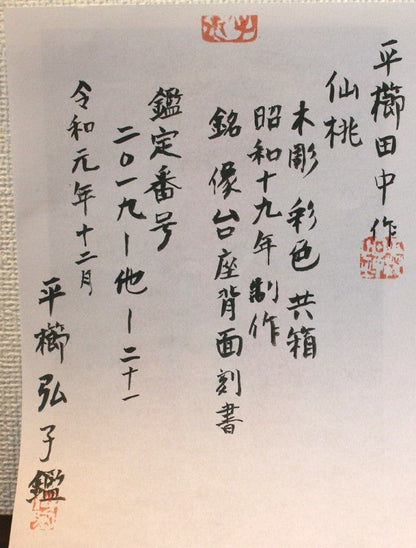 平櫛田中作
仙桃
木彫 彩色 共箱
昭和十九年制作
銘 像台座背面刻書
鑑定番号
二〇一九ー他ー二十一
令和元年十二月
平櫛弘子鑑